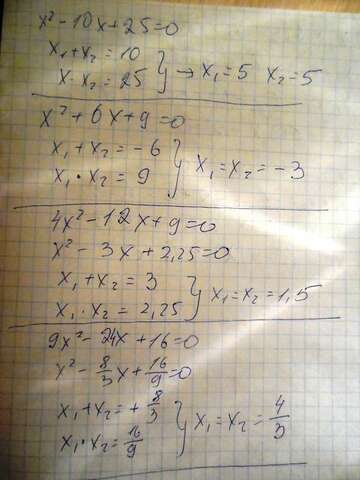 x² - 10x + 25 = 0
x₁ + x₂ = 10
x · x₂ = 25 } → x₁ = 5 x₂ = 5
x² + 6x + 9 = 0
x₁ + x₂ = -6
x₁ · x₂ = 9 } x₁ = x₂ = -3
4x² - 12x + 9 = 0
x² - 3x + 2,25 = 0
x₁ + x₂ = 3
x₁ · x₂ = 2,25 } x₁ = x₂ = 1,5
9x² - 24x + 16 = 0
x² - 8/3 x + 16/9 = 0
x₁ + x₂ = + 8/3
x₁ · x₂ = 16/9 } x₁ = x₂ = 4/3